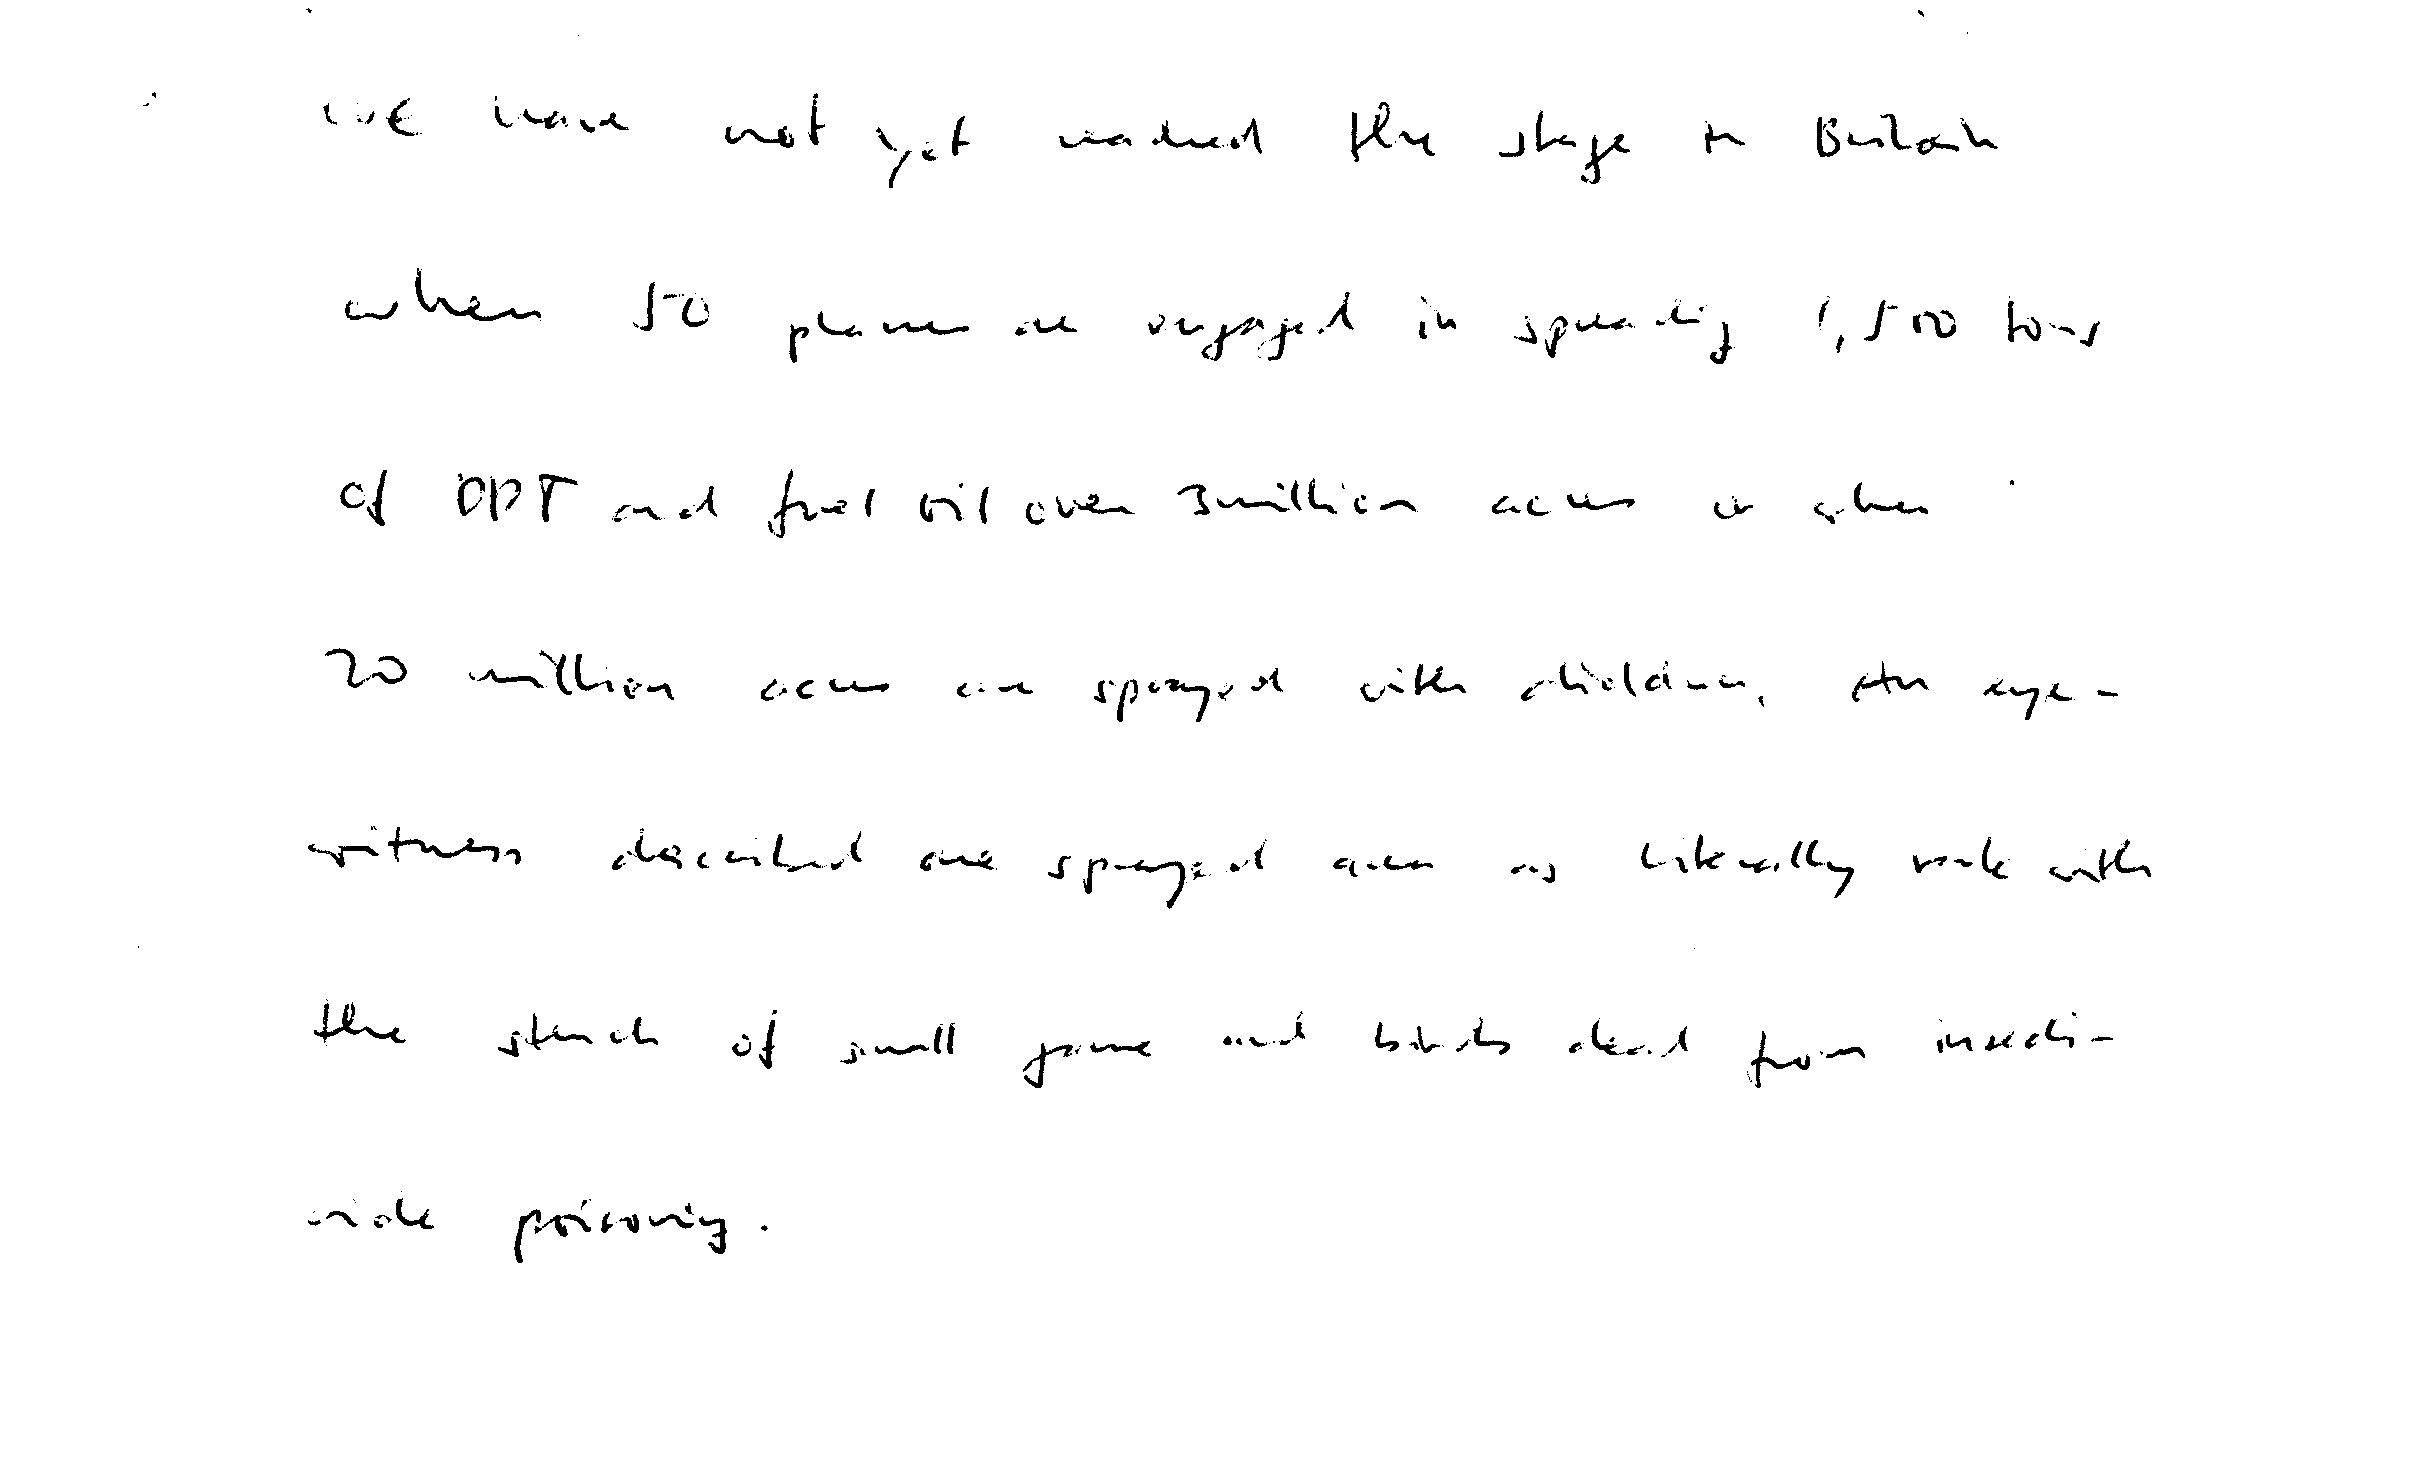 We have not yet reached the stage in Britain
when 50 planes are engaged in spreading 1,500 tons
of DDT and fuel oil over 3 million acres or when
20 million acres are sprayed with dieldrin. An eye-
witness described one sprayed area as literally rank with
the stench of small game and birds dead from insecti-
cide poisoning.